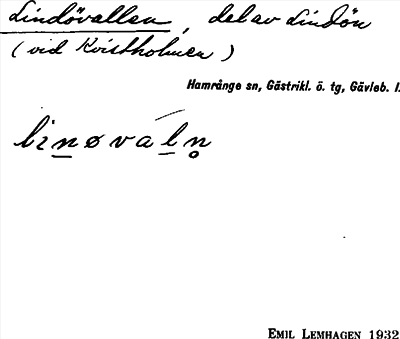 Lindövallen, del av Lindön
(vid Kvistholmen)
Hamrånge sn, Gästrikl. ö. tg, Gävleb. l.
linøvaln
EMIL LEMHAGEN 1932